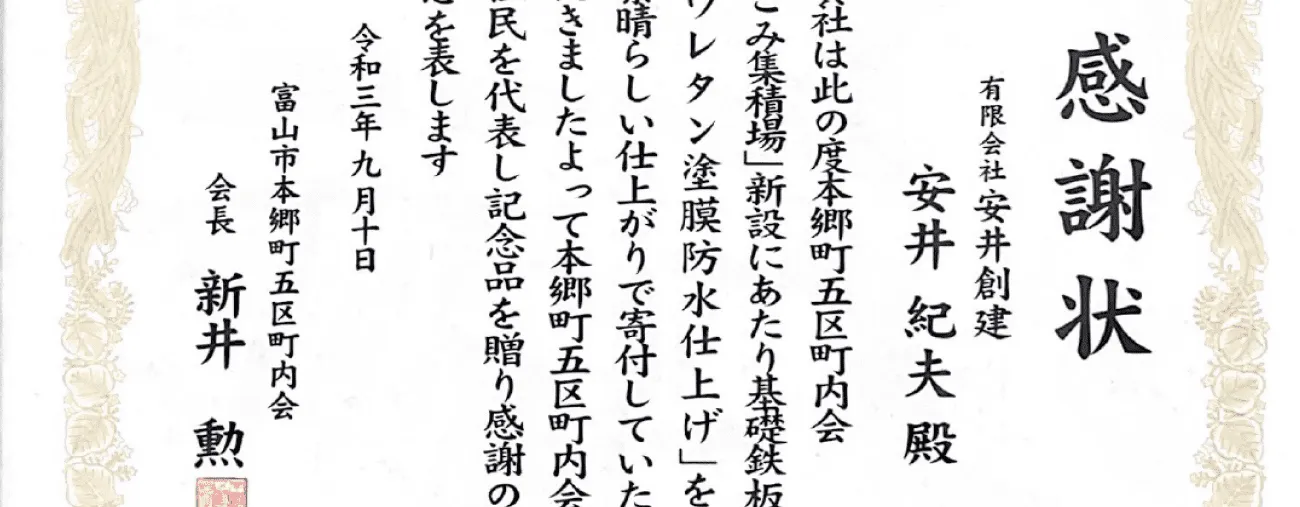 感謝状
有限会社安井創建
安井 紀夫 殿
社は此の度本郷町五区町内会
ごみ集積場」新設にあたり基礎鉄板
ウレタン塗膜防水仕上げ」を
晴らしい仕上がりで寄付していた
きましたよって本郷町五区町内会
住民を代表し記念品を贈り感謝の
を表します
令和三年九月十日
富山市本郷町五区町内会
会長 新井 勲